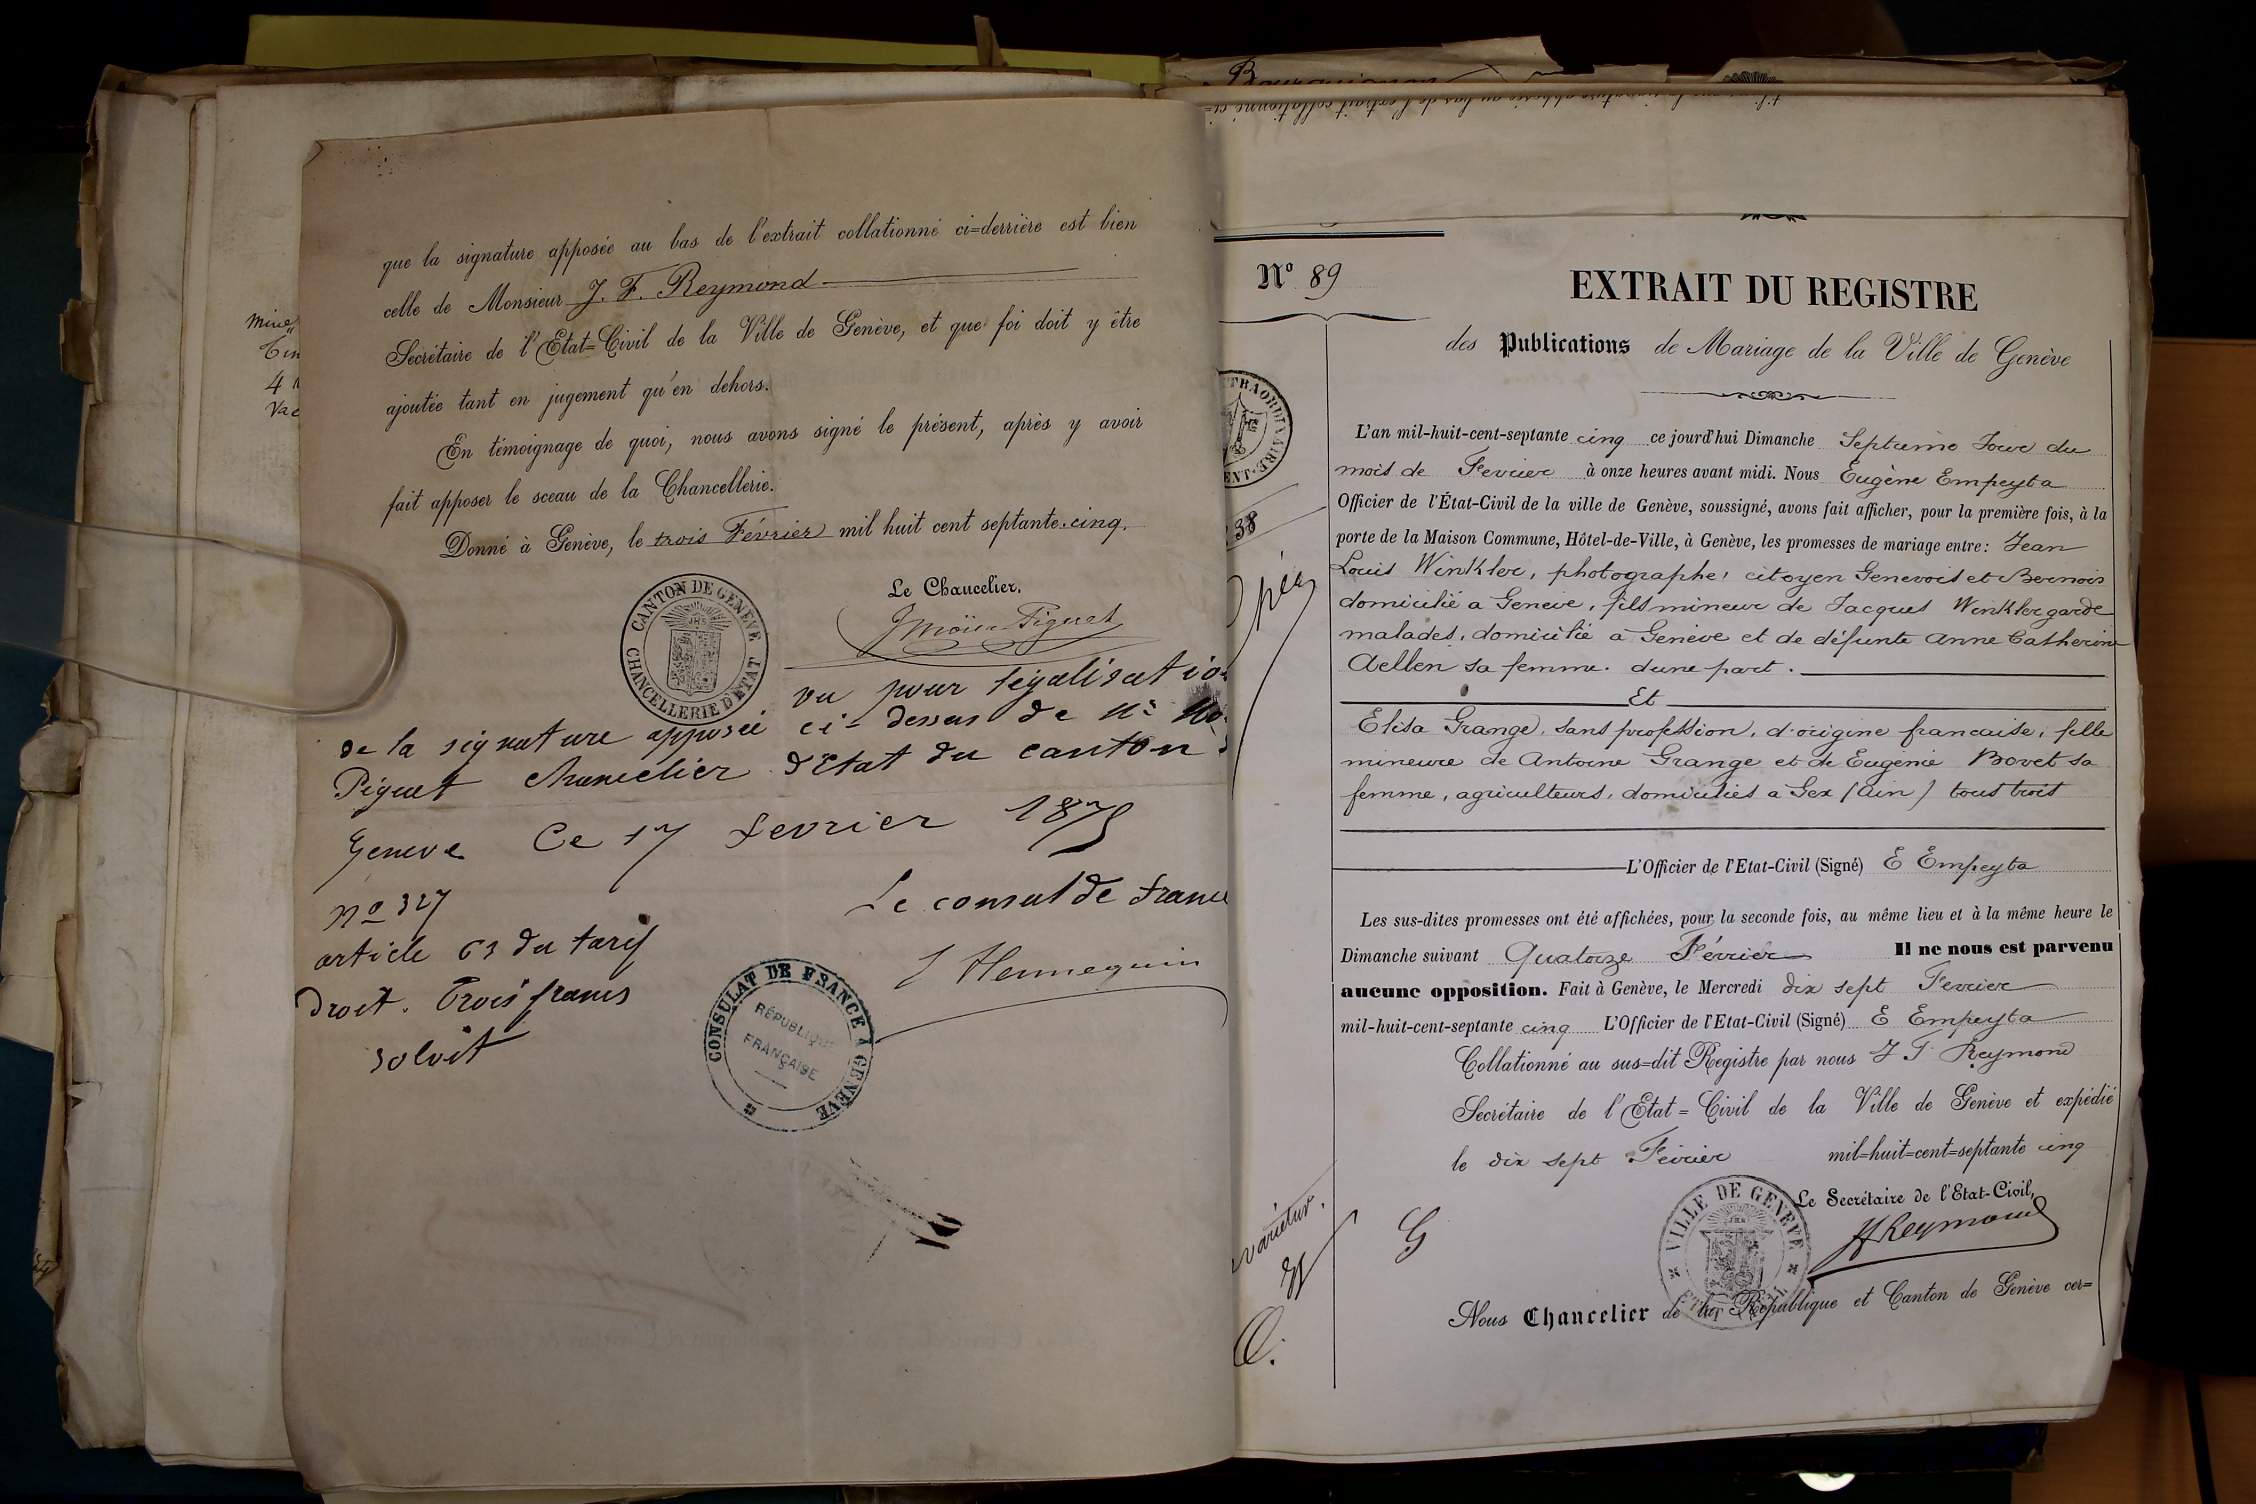 mine
4
vac
que la signature apposée au bas de l'extrait collationné ci=derrière est bien
celle de Monsieur J. F. Reymond
Secrétaire de l'Etat=Civil de la Ville de Genève, et que foi doit y être
ajoutée tant en jugement qu'en dehors.
En témoignage de quoi, nous avons signé le présent, après y avoir
fait apposer le sceau de la Chancellerie.
Donné à Genève, le trois Février mil huit cent septante-cinq.
Le Chancelier,
CANTON DE GENÈVE
CHANCELLERIE D'ETAT
vu pour légalisation
de la signature apposée ci-dessus de Mr
Piguet chancelier d'Etat du canton
Geneve Ce 17 fevrier 1875
No 327
Le consul de France
article 63 du tarif
J Hennequin
droit. Trois francs
solvit
CONSULAT DE FRANCE A GENÈVE
RÉPUBLIQUE
FRANÇAISE
No 89
EXTRAIT DU REGISTRE
des Publications de Mariage de la Ville de Genève
L'an mil-huit-cent-septante cinq ce jourd'hui Dimanche Septième Jour du
mois de Fevrier à onze heures avant midi. Nous Eugène Empeyta
Officier de l'État-Civil de la ville de Genève, soussigné, avons fait afficher, pour la première fois, à la
porte de la Maison Commune, Hôtel-de-Ville, à Genève, les promesses de mariage entre: Jean
Louis Winkler, photographe, citoyen Genevois et Bernois
domicilié a Geneve, fils mineur de Jacques Winkler garde
malades, domicilié a Genève et de défunte Anne Catherine
Aellen sa femme. dune part.
Et
Elisa Grange, sans profession, d'origine francaise, fille
mineure de Antoine Grange et de Eugenie Bovet sa
femme, agriculteurs, domiciliés a Gex (Ain) tous trois
L'Officier de l'Etat-Civil (Signé) E Empeyta
Les sus-dites promesses ont été affichées, pour la seconde fois, au même lieu et à la même heure le
Dimanche suivant Quatorze Février Il ne nous est parvenu
aucune opposition. Fait à Genève, le Mercredi dix sept Fevrier
mil-huit-cent-septante cinq L'Officier de l'Etat-Civil (Signé) E Empeyta
Collationné au sus=dit Registre par nous J F Reymond
Secrétaire de l'Etat=Civil de la Ville de Genève et expédié
le dix sept Février mil=huit=cent=septante cinq
Le Secrétaire de l'Etat-Civil,
JFReymond
VILLE DE GENEVE
ETAT CIVIL
varietur.
G
Nous Chancelier de la République et Canton de Genève cer=